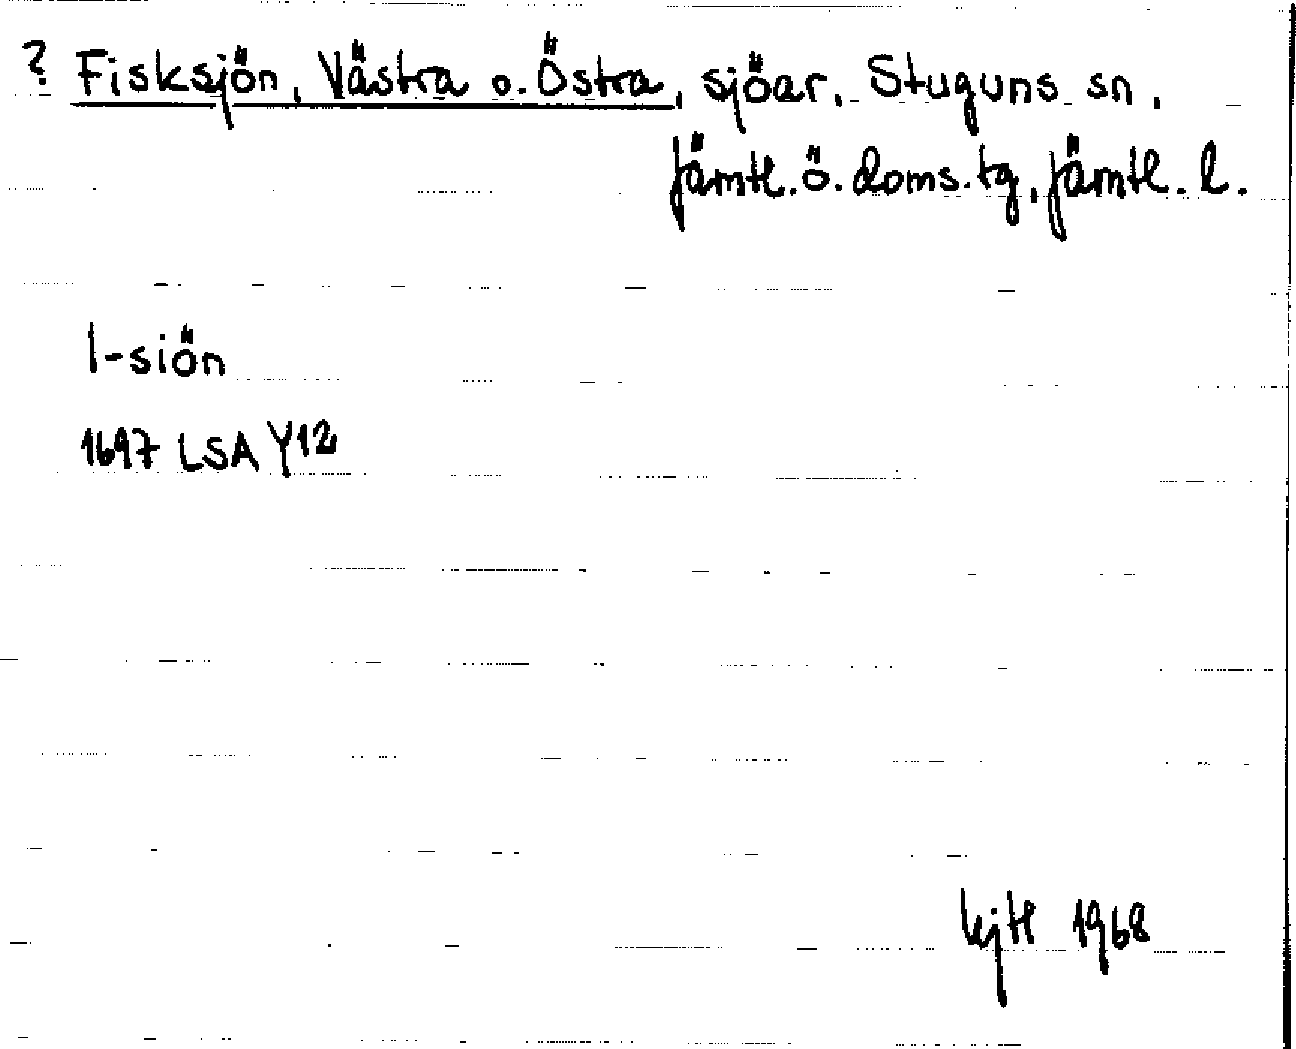 ? Fisksjön, Västra o. Östra, sjöar, Stuguns sn,
Jämtl. ö. doms. tg, Jämtl. l.
I-siön
1697 LSA Y12
1968